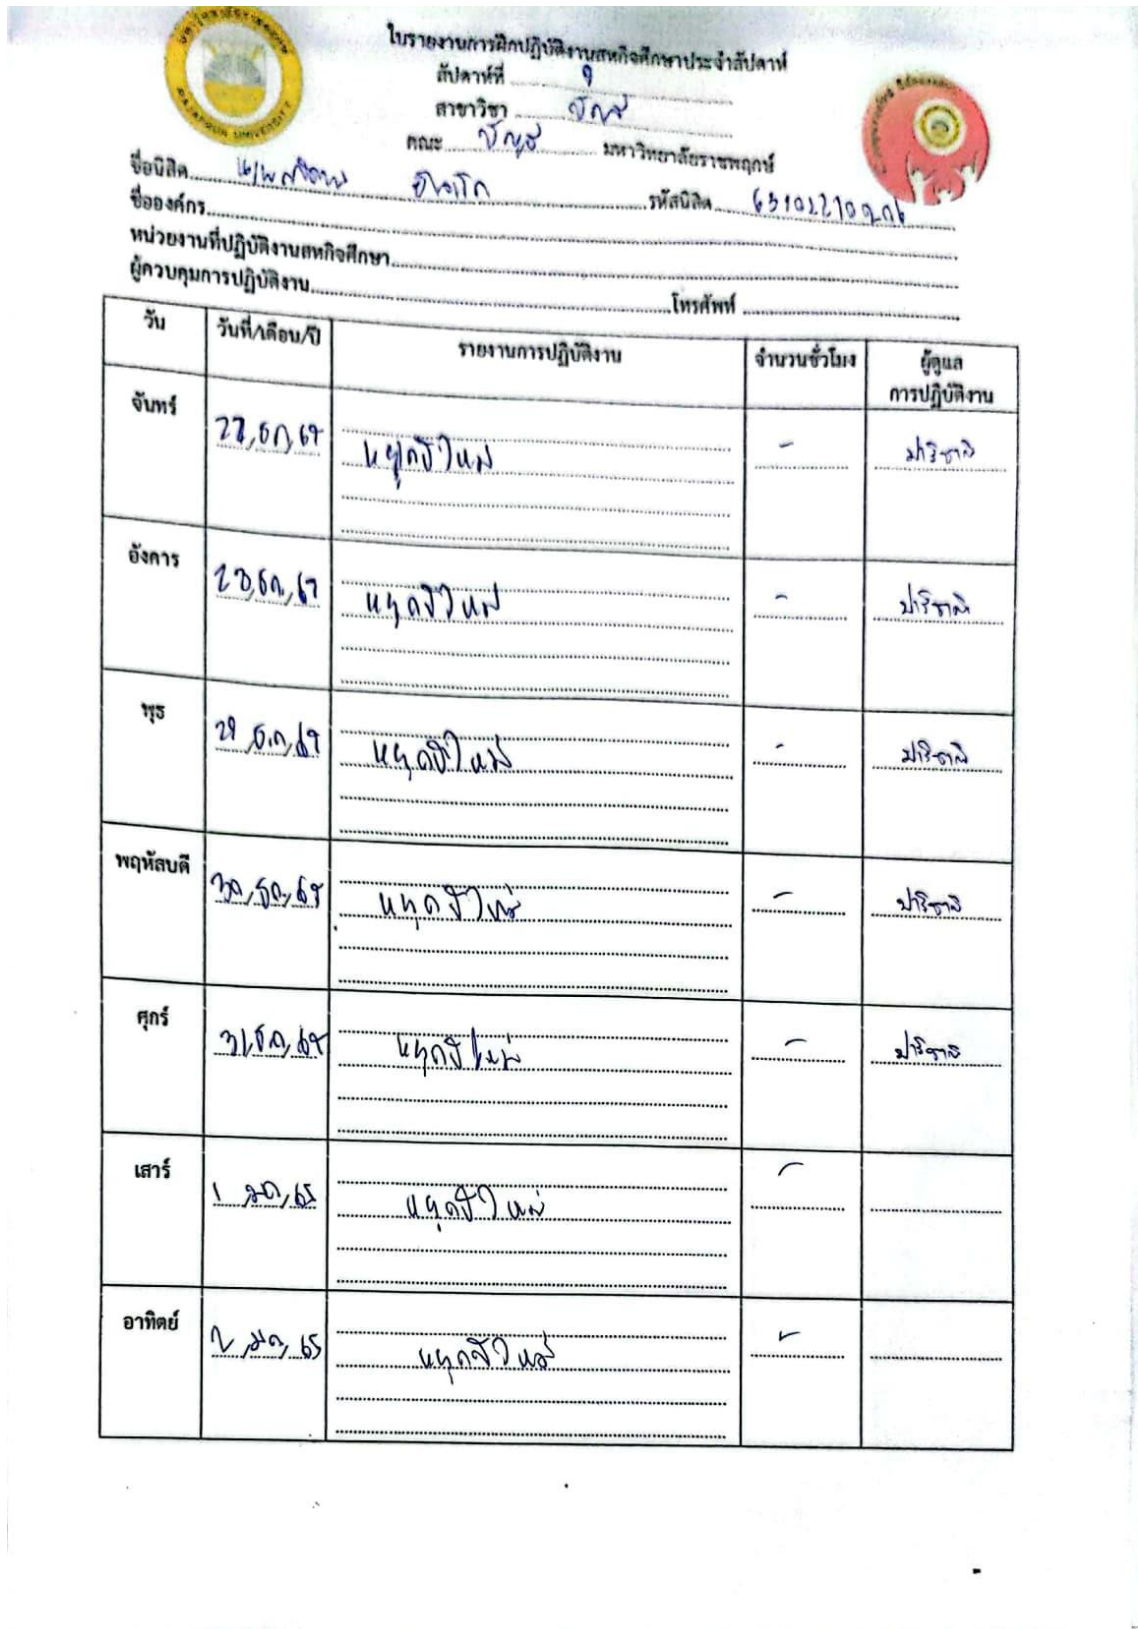 ใบรายงานการฝึกปฏิบัติงานสหกิจศึกษาประจำสัปดาห์
สัปดาห์ที่
สาขาวิชา บัญชี
คณะ บัญชี มหาวิทยาลัยราชพฤกษ์
RAJAPRUK UNIVERSITY
ชื่อนิสิต รหัสนิสิต
ชื่อองค์กร
หน่วยงานที่ปฏิบัติงานสหกิจศึกษา
ผู้ควบคุมการปฏิบัติงาน โทรศัพท์
วัน วันที่/เดือน/ปี รายงานการปฏิบัติงาน จำนวนชั่วโมง ผู้ดูแล
การปฏิบัติงาน
จันทร์ หยุดปีใหม่ - ปาริชาติ
อังคาร หยุดปีใหม่ - ปาริชาติ
พุธ 29 ธ.ค. หยุดปีใหม่ - ปาริชาติ
พฤหัสบดี 30 ธค หยุดปีใหม่ - ปาริชาติ
ศุกร์ 31 ธค หยุดปีใหม่ - ปาริชาติ
เสาร์ 1 มค 65 หยุดปีใหม่ -
อาทิตย์ 2 มค 65 หยุดปีใหม่ -